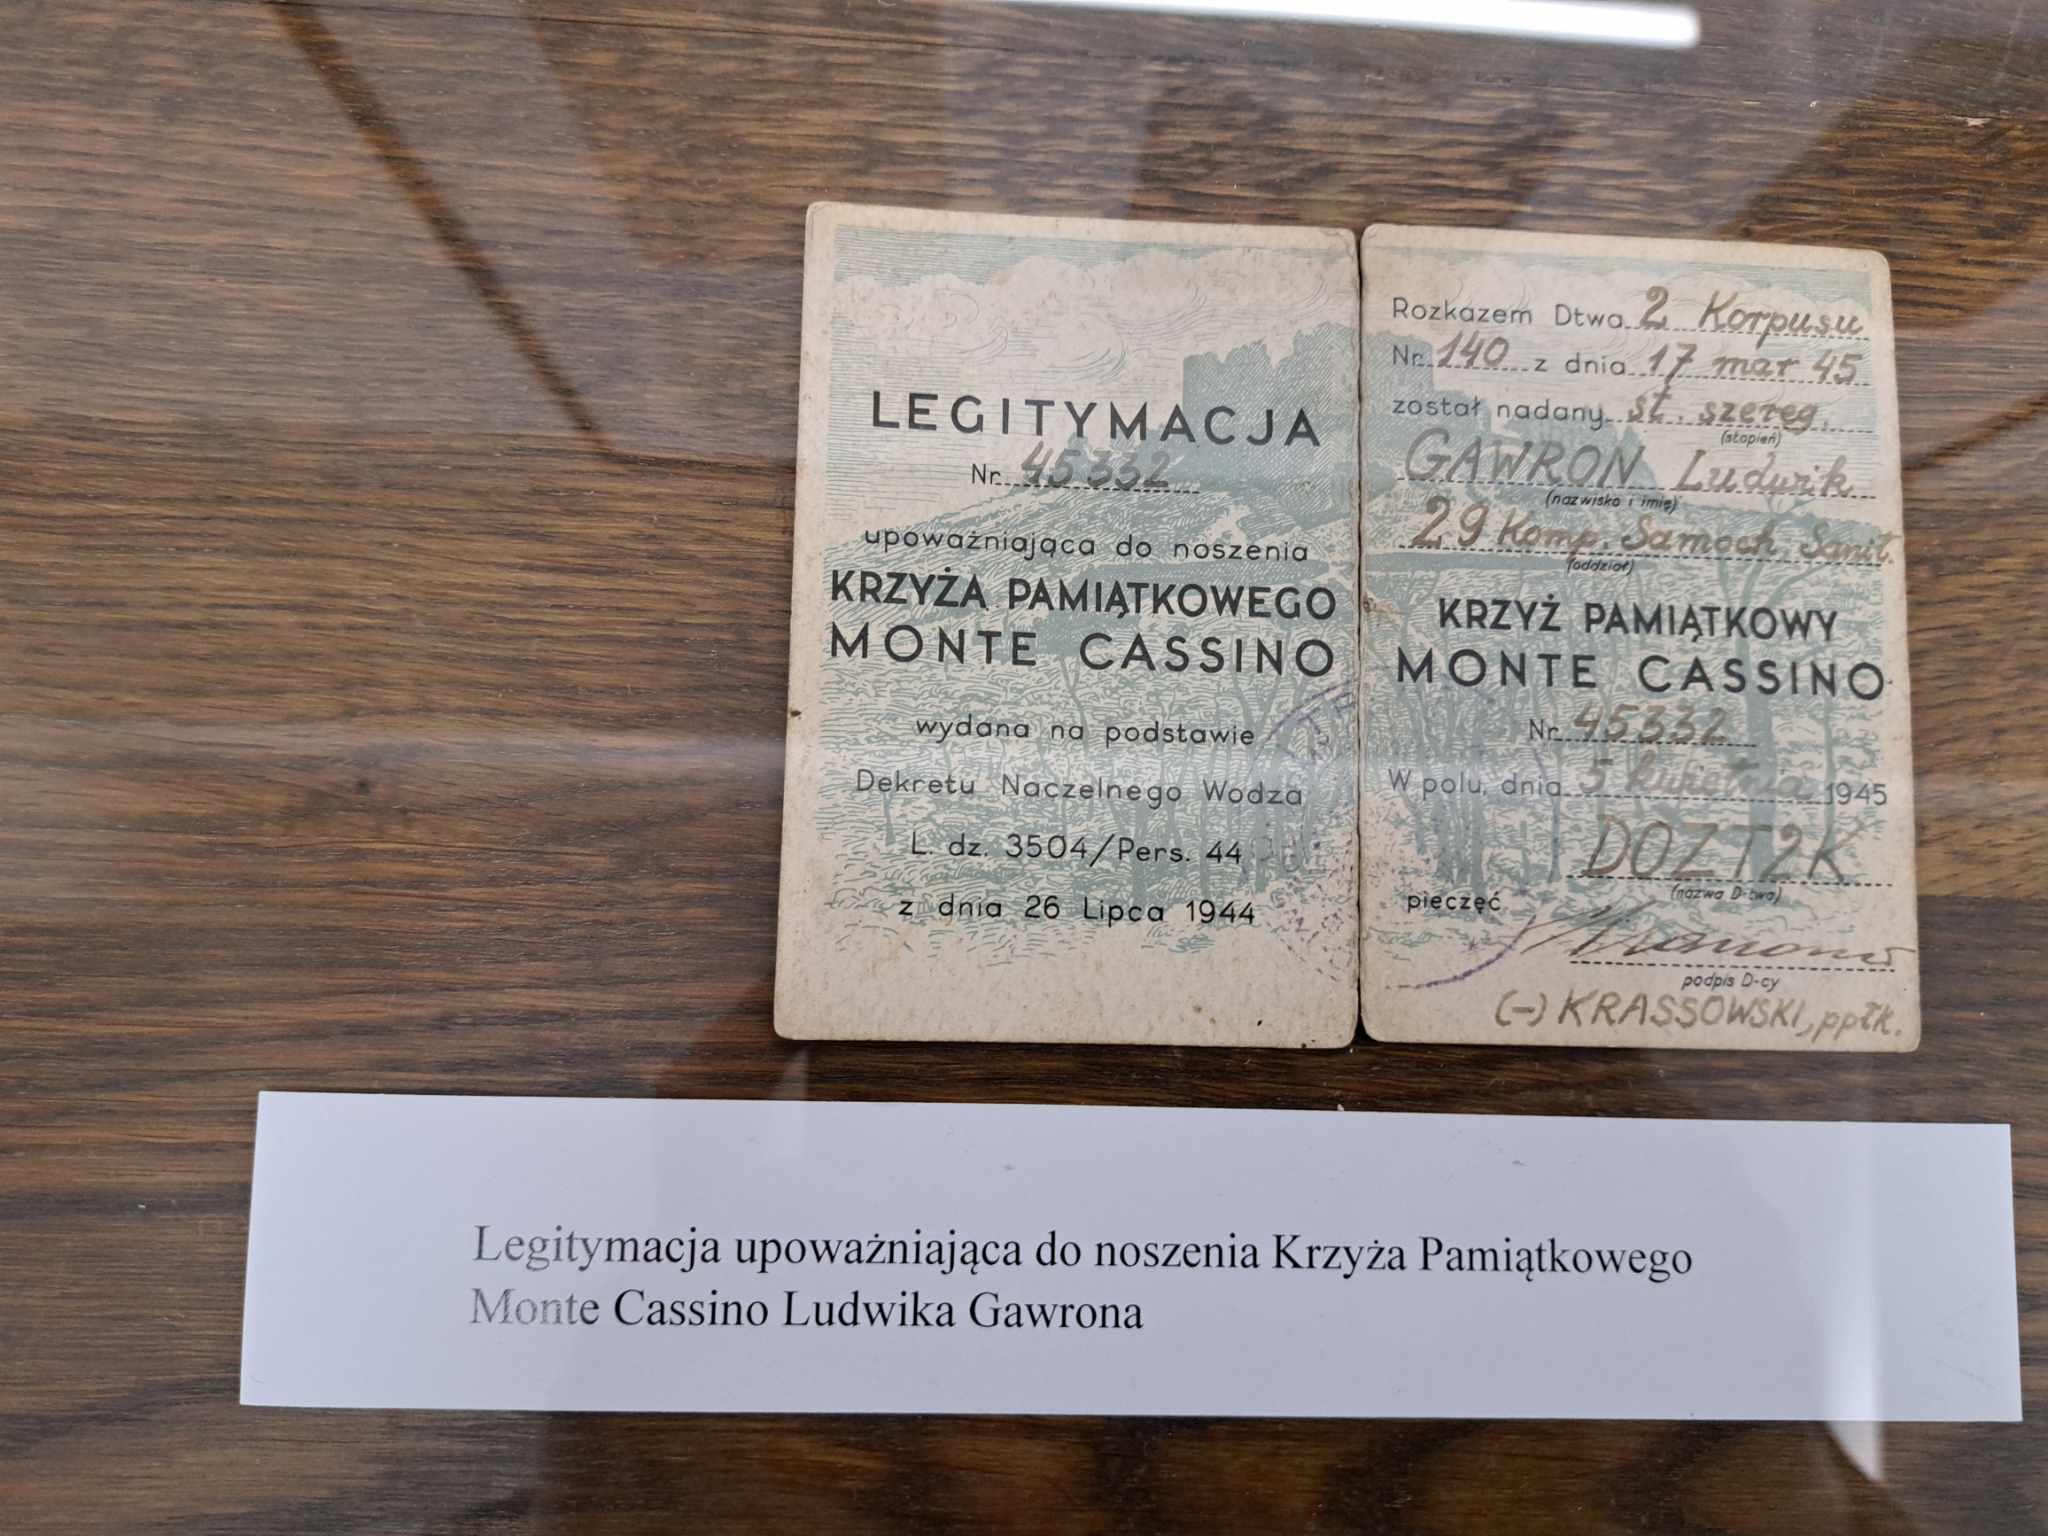 LEGITYMACJA
Nr. 45332
upoważniająca do noszenia
KRZYŻA PAMIĄTKOWEGO
MONTE CASSINO
wydana na podstawie
Dekretu Naczelnego Wodza
L. dz. 3504/Pers. 44
z dnia 26 Lipca 1944
Rozkazem Dtwa 2 Korpusu
Nr. 140 z dnia 17 mar 45
został nadany st. szereg.
(stopień)
GAWRON Ludwik
(nazwisko i imię)
29 Komp. Samoch Sanit.
(oddział)
KRZYŻ PAMIĄTKOWY
MONTE CASSINO
Nr. 45332
W polu, dnia 5 kwietnia 1945
DOZT2K
(nazwa D-twa)
pieczęć
podpis D-cy
(-) KRASSOWSKI, ppłk.
Legitymacja upoważniająca do noszenia Krzyża Pamiątkowego
Monte Cassino Ludwika Gawrona